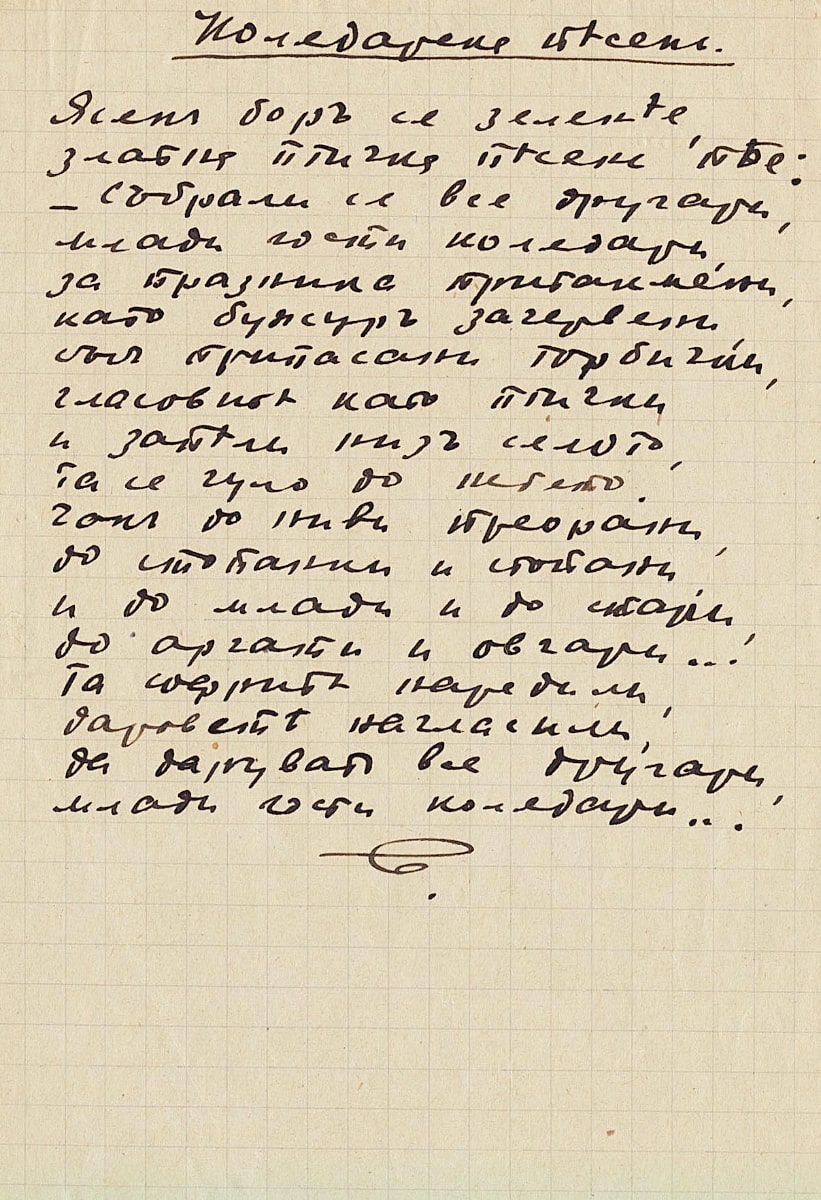 Коледарска пѣсень.
Ясенъ боръ се зеленѣе,
златна птичка пѣсень пѣе:
– Събрали се все другари,
млади гости коледари,
за празника притъкмени,
като божуръ зачервени,
съсъ припасани торбички,
гласовитѣ като птички
и запѣли низъ селото,
та се чуло до небето,
чакъ до ниви преорани,
до стопанки и стопани,
и до млади и до стари,
до аргати и овчари...!
Та софритѣ наредили,
дароветѣ нагласили,
да даруватъ все другари,
млади гости коледари...